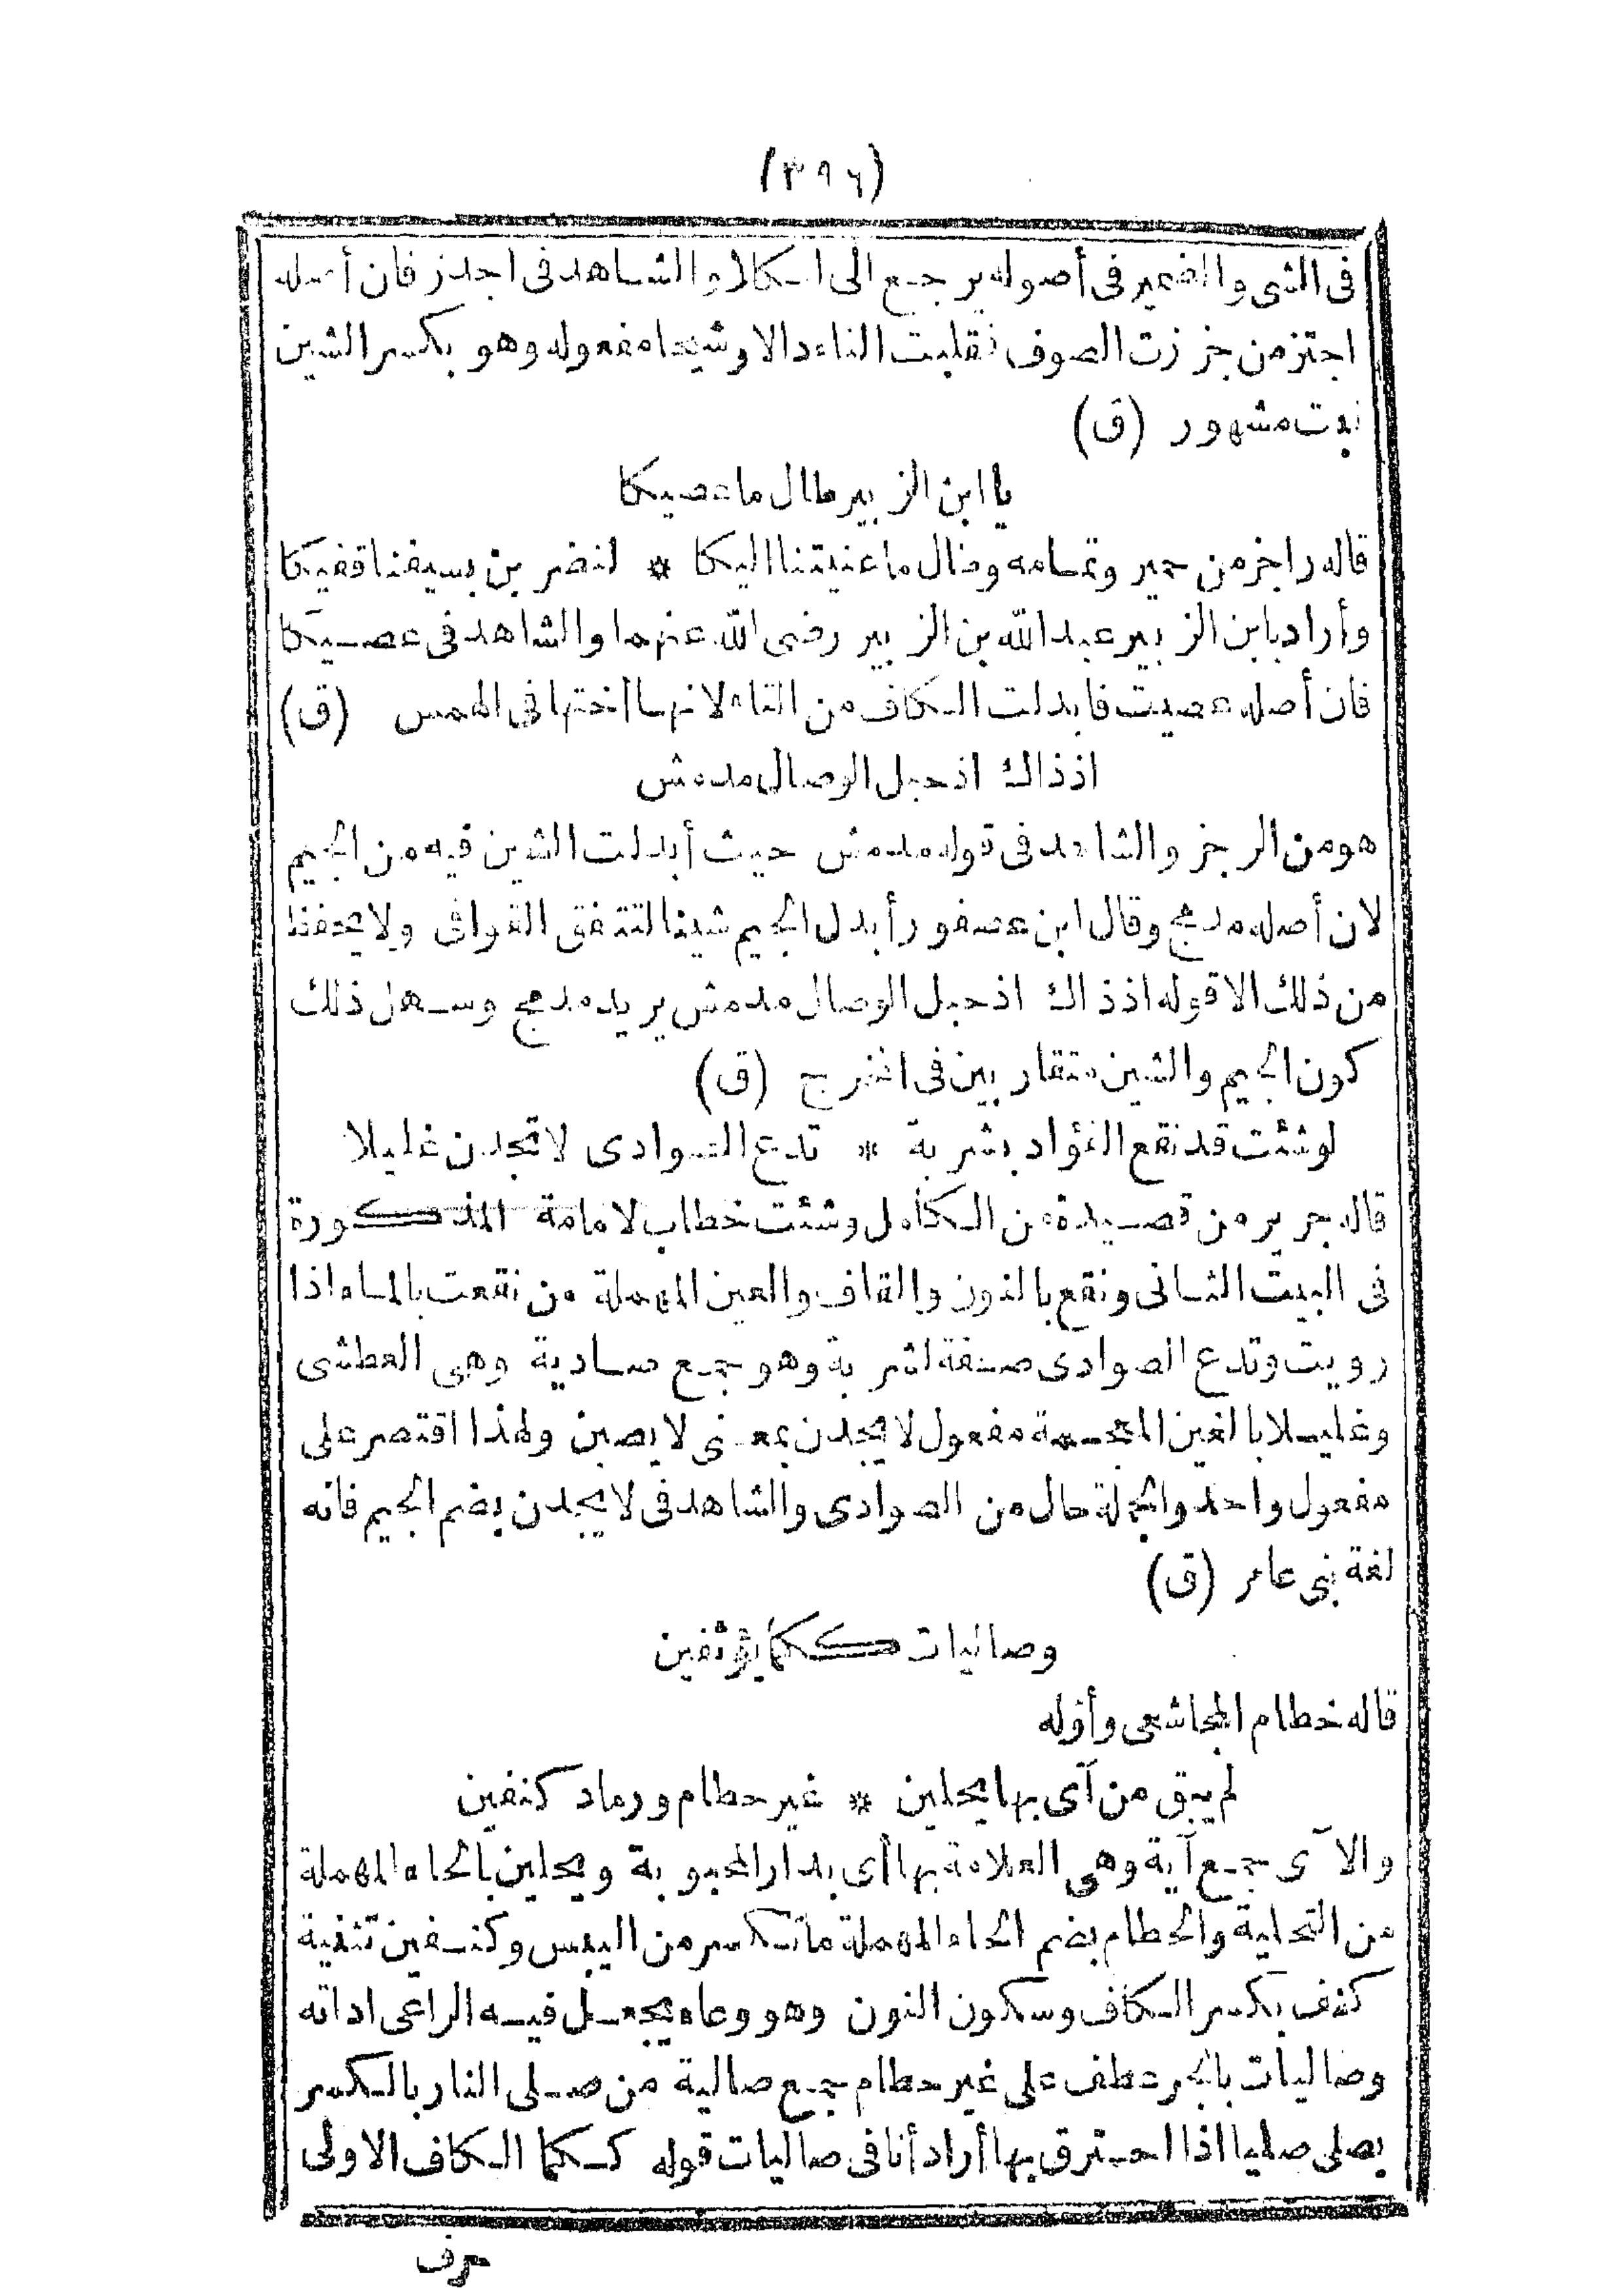 (٣٩٦)
فى الشى والضمير فى أصوله يرجع الى الكلاء والشاهد فى اجدز فان أصله
اجتز من جززت الصوف فقلبت التاء دالا وشيحا مفعوله وهو بكسر الشين
نبت مشهور (ق)
يا ابن الزبير طال ما عصيكا
قاله راجز من حمير وتمامه وطال ما عنيتنا اليكا * لنضربن بسيفنا قفيكا
وأراد بابن الزبير عبد الله بن الزبير رضى الله عنهما والشاهد فى عصيكا
فان أصله عصيت فابدلت الكاف من التاء لانها أختها فى الهمس (ق)
اذ ذاك اذ حبل الوصال مدمش
هو من الرجز والشاهد فى قوله مدمش حيث أبدلت الشين فيه من الجيم
لان أصله مدمج وقال ابن عصفور أبدل الجيم شينا لتتفق القوافى ولا يحفظ
من ذلك الا قوله اذ ذاك اذ حبل الوصال مدمش يريد مدمج وسهل ذلك
كون الجيم والشين متقاربين فى المخرج (ق)
لو شئت قد نقع الفؤاد بشربة * تدع الصوادى لا تجدن غليلا
قاله جرير من قصيدة من الكامل وشئت خطاب لامامة المذكورة
فى البيت الثانى ونقع بالنون والقاف والعين المهملة من نقعت بالماء اذا
رويت وتدع الصوادى صفة لشربة وهو جمع صادية وهى العطشى
وغليلا بالغين المعجمة مفعول لا يجدن بمعنى لا يصبن ولهذا اقتصر على
مفعول واحد والجملة حال من الصوادى والشاهد فى لا يجدن بضم الجيم فانه
لغة بنى عامر (ق)
وصاليات ككما يؤثفين
قاله خطام المجاشعى وأوله
لم يبق من آى بها يحلين * غير حطام ورماد كنفين
والآى جمع آية وهى العلامة بها أى بدار المحبوبة ويحلين بالحاء المهملة
من التحلية والحطام بضم الحاء المهملة ما تكسر من اليبس وكنفين تثنية
كنف بكسر الكاف وسكون النون وهو وعاء يجعل فيه الراعى اداته
وصاليات بالجر عطف على غير حطام جمع صالية من صلى النار بالكسر
يصلى صليا اذا احترق بها أراد أنا فى صاليات قوله ككما الكاف الاولى
حرف